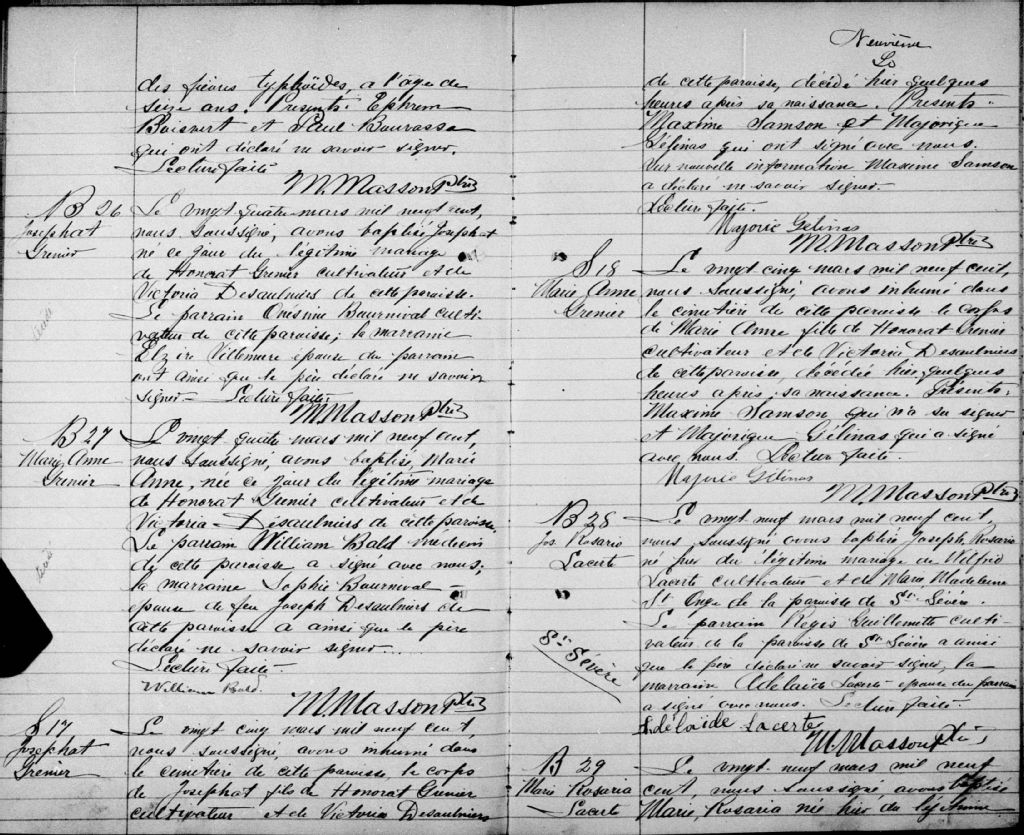 des fièvres typhoïdes, a l'âge de
seize ans. Presents. Ephrem
Boisvert et Paul Bourassa
qui ont déclaré ne savoir signer.
Lecture faite
M. Masson Ptre
B 26
Josephat
Grenier
Le vingt quatre mars mil neuf cent,
nous soussigné, avons baptisé Josephat
né ce jour du légitime mariage
de Honorat Grenier cultivateur et de
Victoria Desaulniers de cette paroisse.
Le parrain Onesime Bournival culti-
vateur de cette paroisse; la marraine
Elzire Villemure épouse du parrain
ont ainsi que le père déclaré ne savoir
signer - Lecture faite.
M. Masson Ptre
B 27
Marie Anne
Grenier
Le vingt quatre mars mil neuf cent,
nous soussigné, avons baptisé, Marie
Anne, née ce jour du légitime mariage
de Honorat Grenier cultivateur et de
Victoria Desaulniers de cette paroisse
Le parrain William Bald medecin
de cette paroisse a signé avec nous;
la marraine Sophie Bournival
épouse de feu Joseph Desaulniers de
cette paroisse a ainsi que le père
déclaré ne savoir signer
Lecture faite.
William Bald.
M. Masson Ptre
S 17
Josephat
Grenier
Le vingt cinq mars mil neuf cent,
nous soussigné, avons inhumé dans
le cimetière de cette paroisse le corps
de Josephat fils de Honorat Grenier
cultivateur et de Victoria Desaulniers
Neuvième
de cette paroisse, décédé hier quelques
heures après sa naissance. Presents.
Maxime Samson et Majorique
Gélinas qui ont signé avec nous.
Sur nouvelle information Maxime Samson
a déclaré ne savoir signer.
Lecture faite.
Majorie Gélinas
M. Masson Ptre
S 18
Marie Anne
Grenier
Le vingt cinq mars mil neuf cent,
nous soussigné, avons inhumé dans
le cimetière de cette paroisse le corps
de Marie Anne fille de Honorat Grenier
cultivateur et de Victoria Desaulniers
de cette paroisse, décédée hier, quelques
heures après sa naissance. Présents
Maxime Samson qui n'a su signer
et Majorique Gélinas qui a signé
avec nous. Lecture faite.
Majorie Gélinas
M. Masson Ptre
B 28
Jos. Rosario
Lacerte
St. Sévère
Le vingt-neuf mars mil neuf cent,
nous soussigné avons baptisé Joseph, Rosario
né hier du légitime mariage de Wilfrid
Lacerte cultivateur et de Marie Madeleine
St. Onge de la paroisse de St. Sévère.
Le parrain Régis Guillemette culti-
vateur de la paroisse de St. Sévère a ainsi
que le père déclaré ne savoir signer, la
marraine Adelaïde Lacerte épouse du parrain
a signé avec nous. Lecture faite.
Adélaïde Lacerte
M. Masson Ptre
B 29
Marie Rosaria
Lacerte
Le vingt-neuf mars mil neuf
cent, nous soussigné, avons baptisé
Marie, Rosaria née hier du légitime